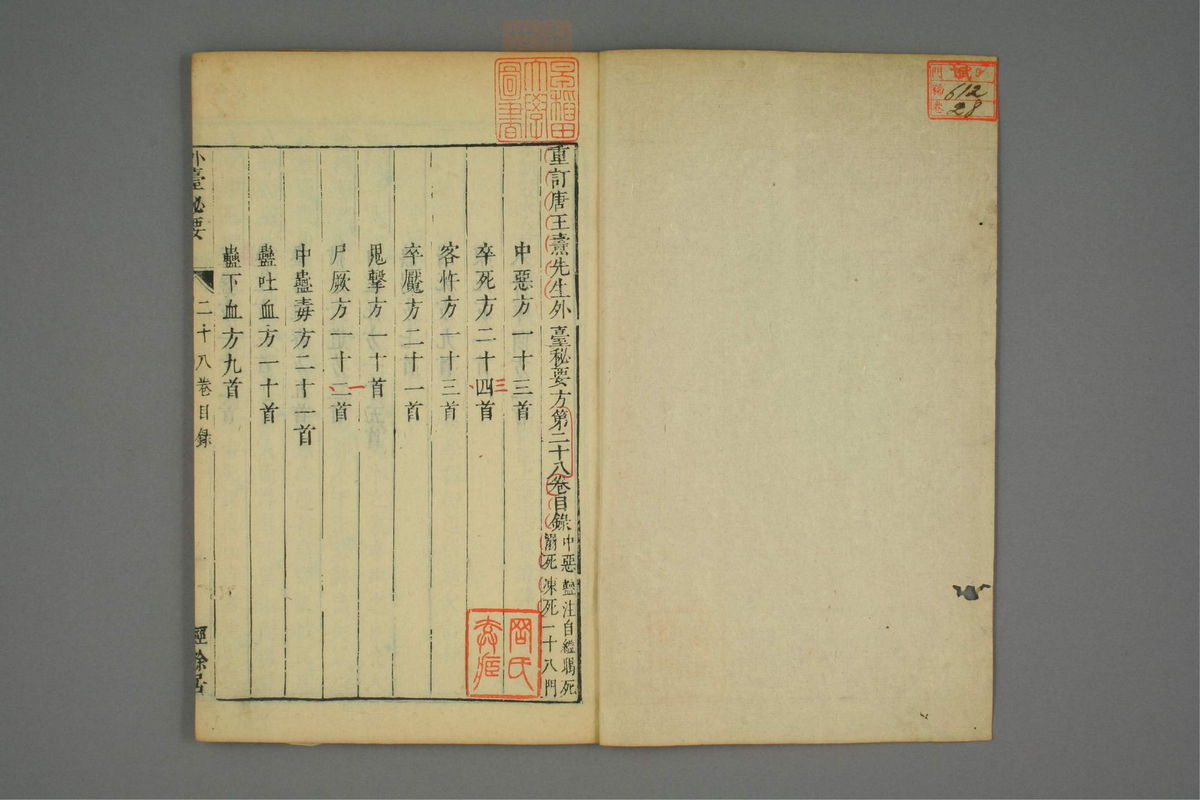 重訂唐王燾先生外臺秘要方第二十八卷目錄
中惡蠱注自縊暍死
凍死一十八門
中惡方一十三首
卒死方二十四首
三
客忤方一十三首
卒魘方二十一首
鬼擊方一十首
一
尸厥方一十二首
中蠱毒方二十一首
蠱吐血方一十首
蠱下血方九首
外臺秘要
二十八卷目録
經餘居
門
號
卷
612
28